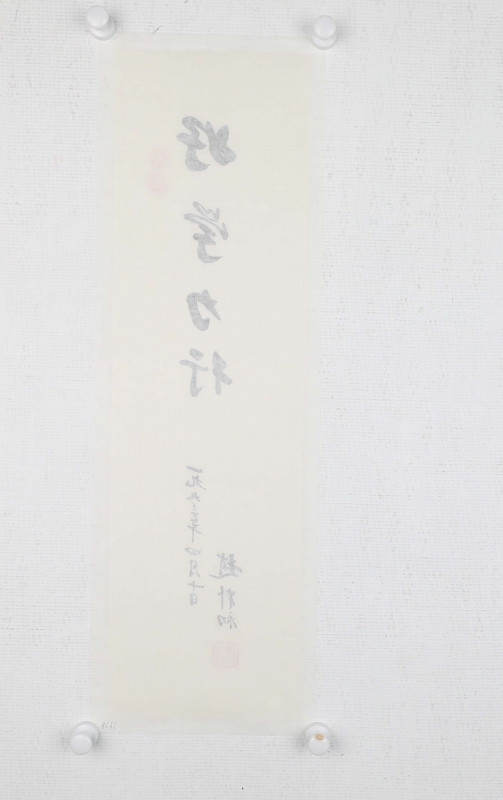 好学力行
一九六三年四月十日
趙朴初